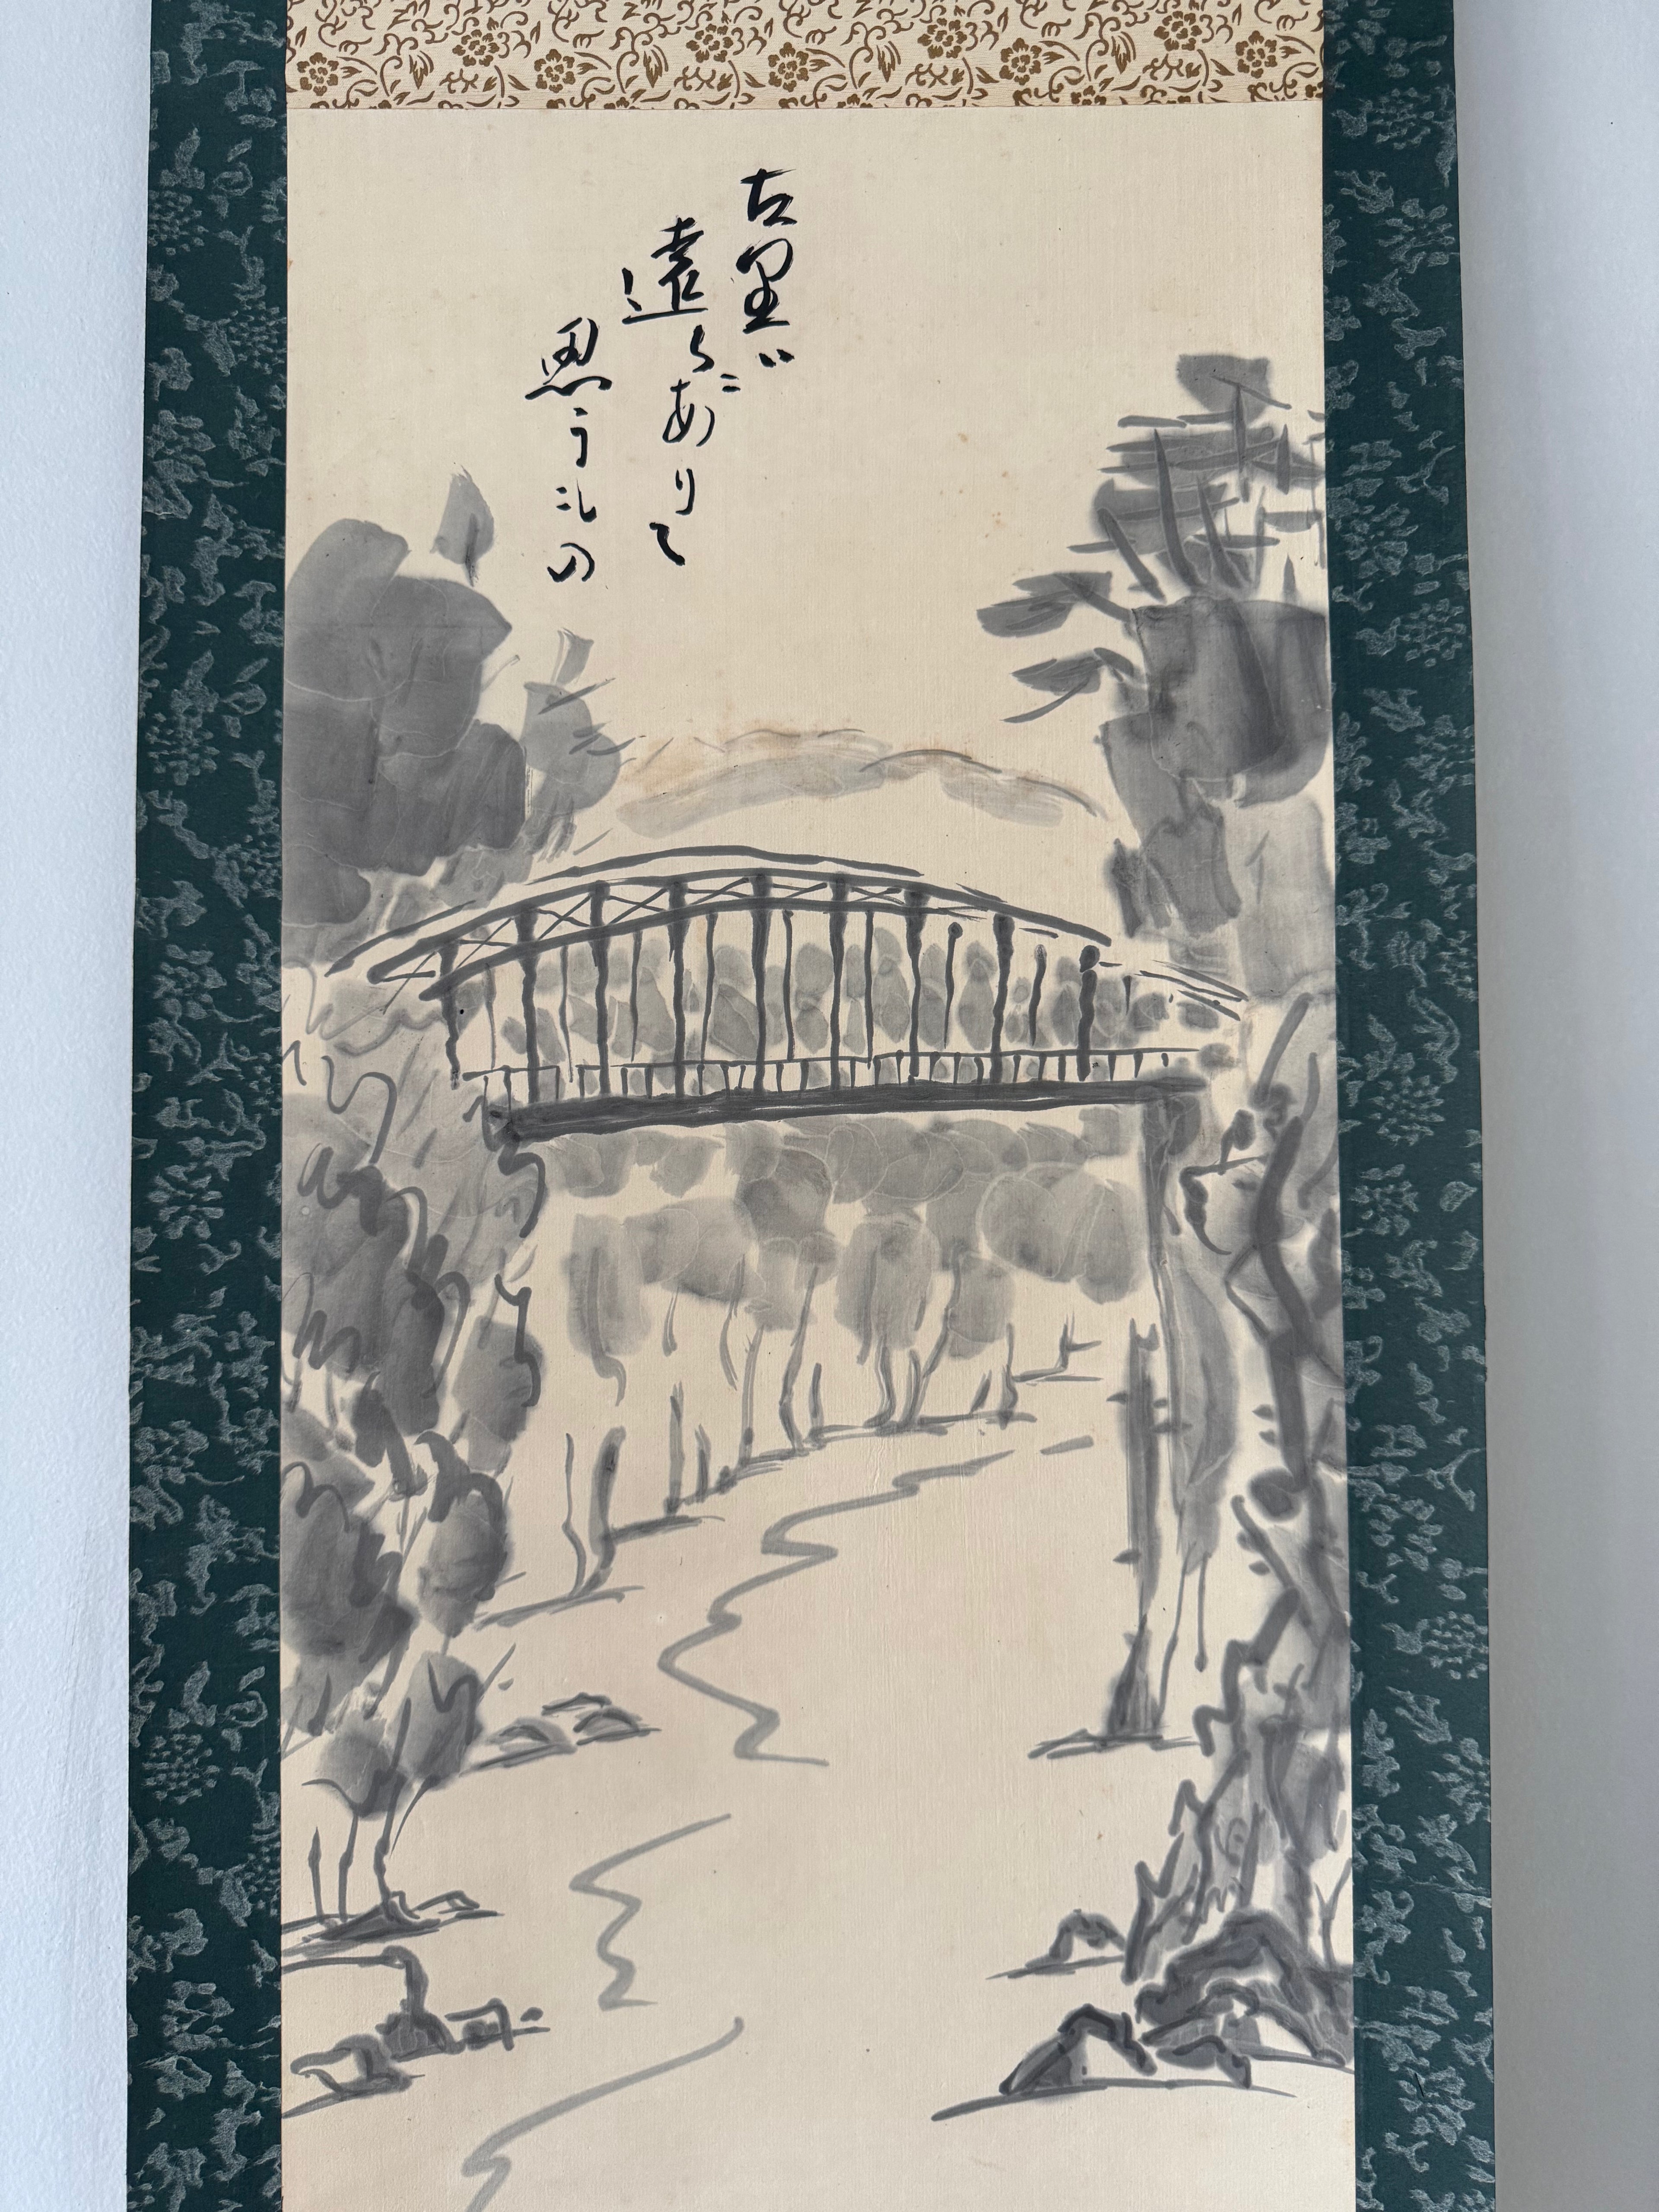 古里ハ
遠くニありて
思うもの